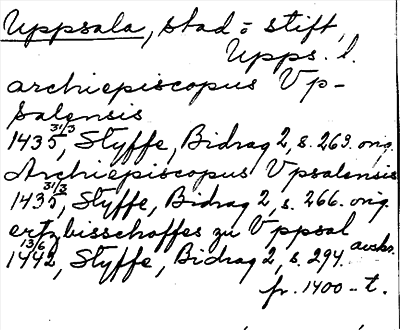 Uppsala, stad o stift,
Upps. l.
archiepiscopus Vp-
salensis
1435 31/3, Styffe, Bidrag 2, s. 263. orig.
Archiepiscopus Vpsalensis
1435 31/3, Styffe, Bidrag 2, s. 266. orig.
ertzbisschoffes zu Vppsal
1442 13/6, Styffe, Bidrag 2, s. 294. avskr.
fr. 1400-t.